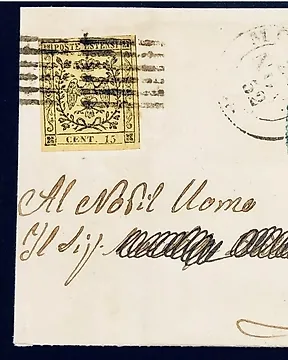 POSTE ESTENSI
CENT. 15
Al Nobil Uomo
Il Sig.